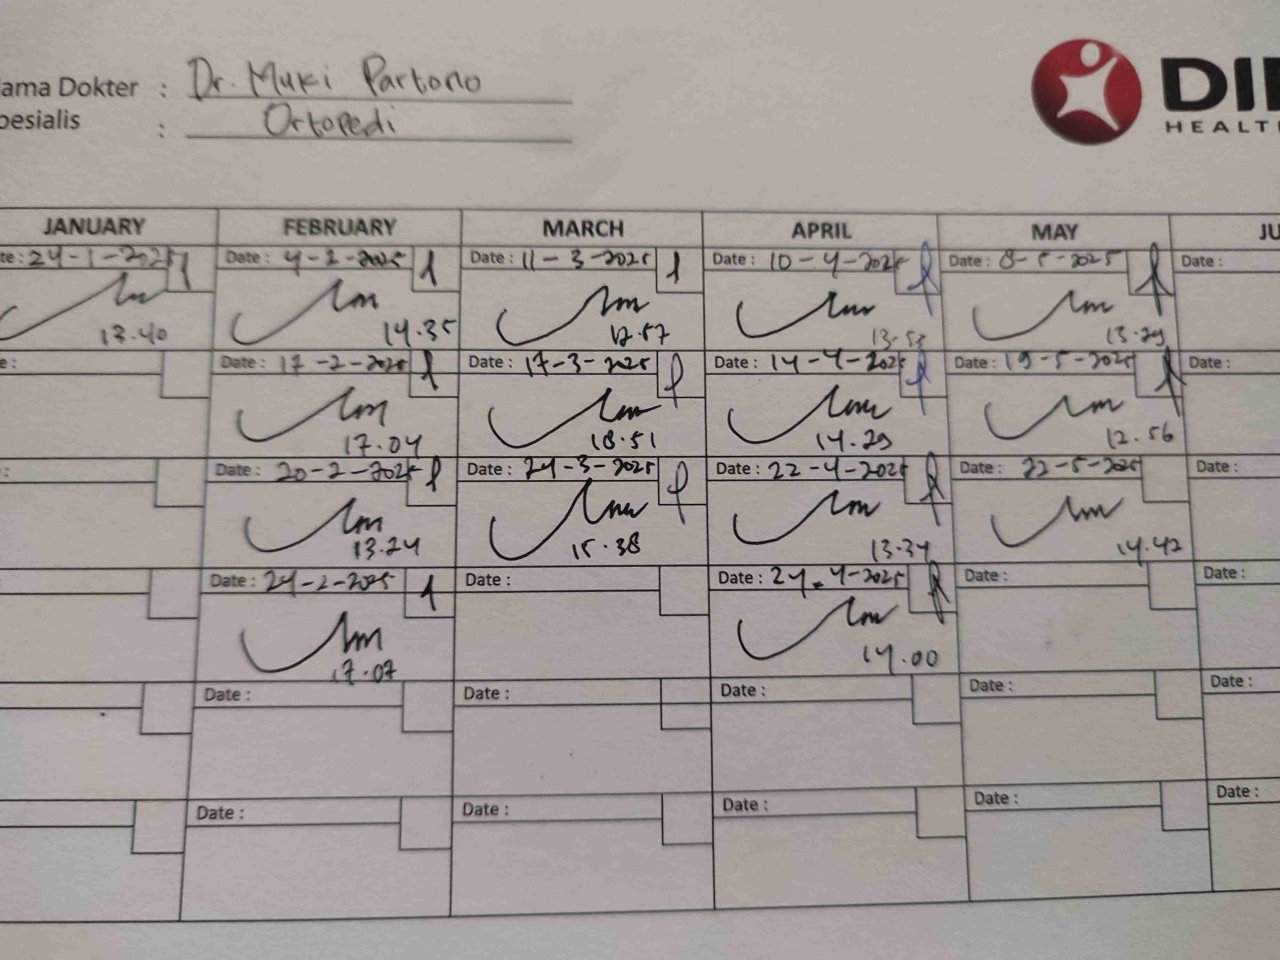 ama Dokter : Dr. Muki Partono
pesialis : Ortopedi
DI
HEALT
JANUARY FEBRUARY MARCH APRIL MAY JU
te : 24-1-2025 Date : 4-2-2025 Date : 11-3-2025 Date : 10-4-2025 Date : 8-5-2025 Date :
13.40 14.35 12.57 13.53 13.29
e : Date : 17-2-2025 Date : 17-3-2025 Date : 14-4-2025 Date : 19-5-2025 Date :
17.04 18.51 14.29 12.56
: Date : 20-2-2025 Date : 24-3-2025 Date : 22-4-2025 Date : 22-5-2025 Date :
13.24 15.38 13.34 14.42
Date : 24-2-2025 Date : Date : 24-4-2025 Date : Date :
17.07 14.00
Date : Date : Date : Date : Date :
Date : Date : Date : Date : Date :